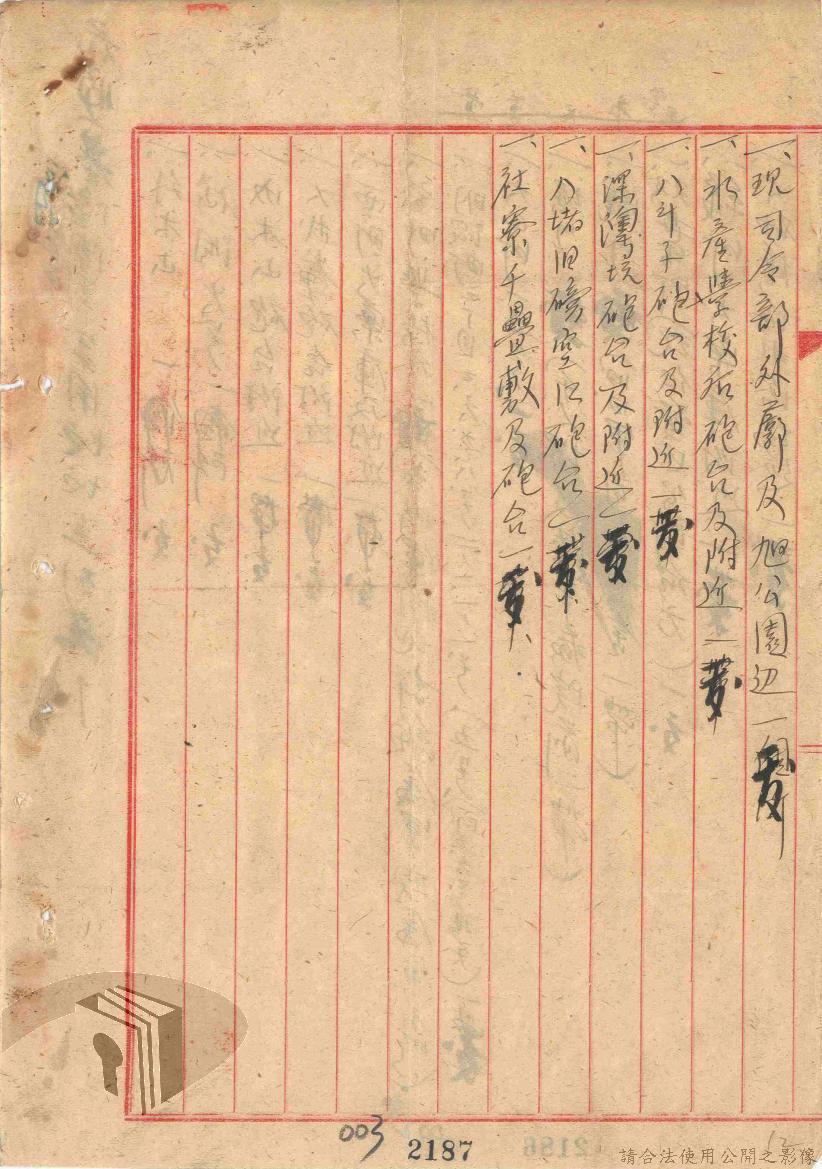 一、現司令部外廓及旭公園边一
一、水產學校后砲台及附近一
一、八斗子砲台及附近一
一、深澳坑砲台及附近一
一、八堵旧礦空口砲台一
一、社寮千疊敷及砲台一
003
2187
請合法使用公開之影像